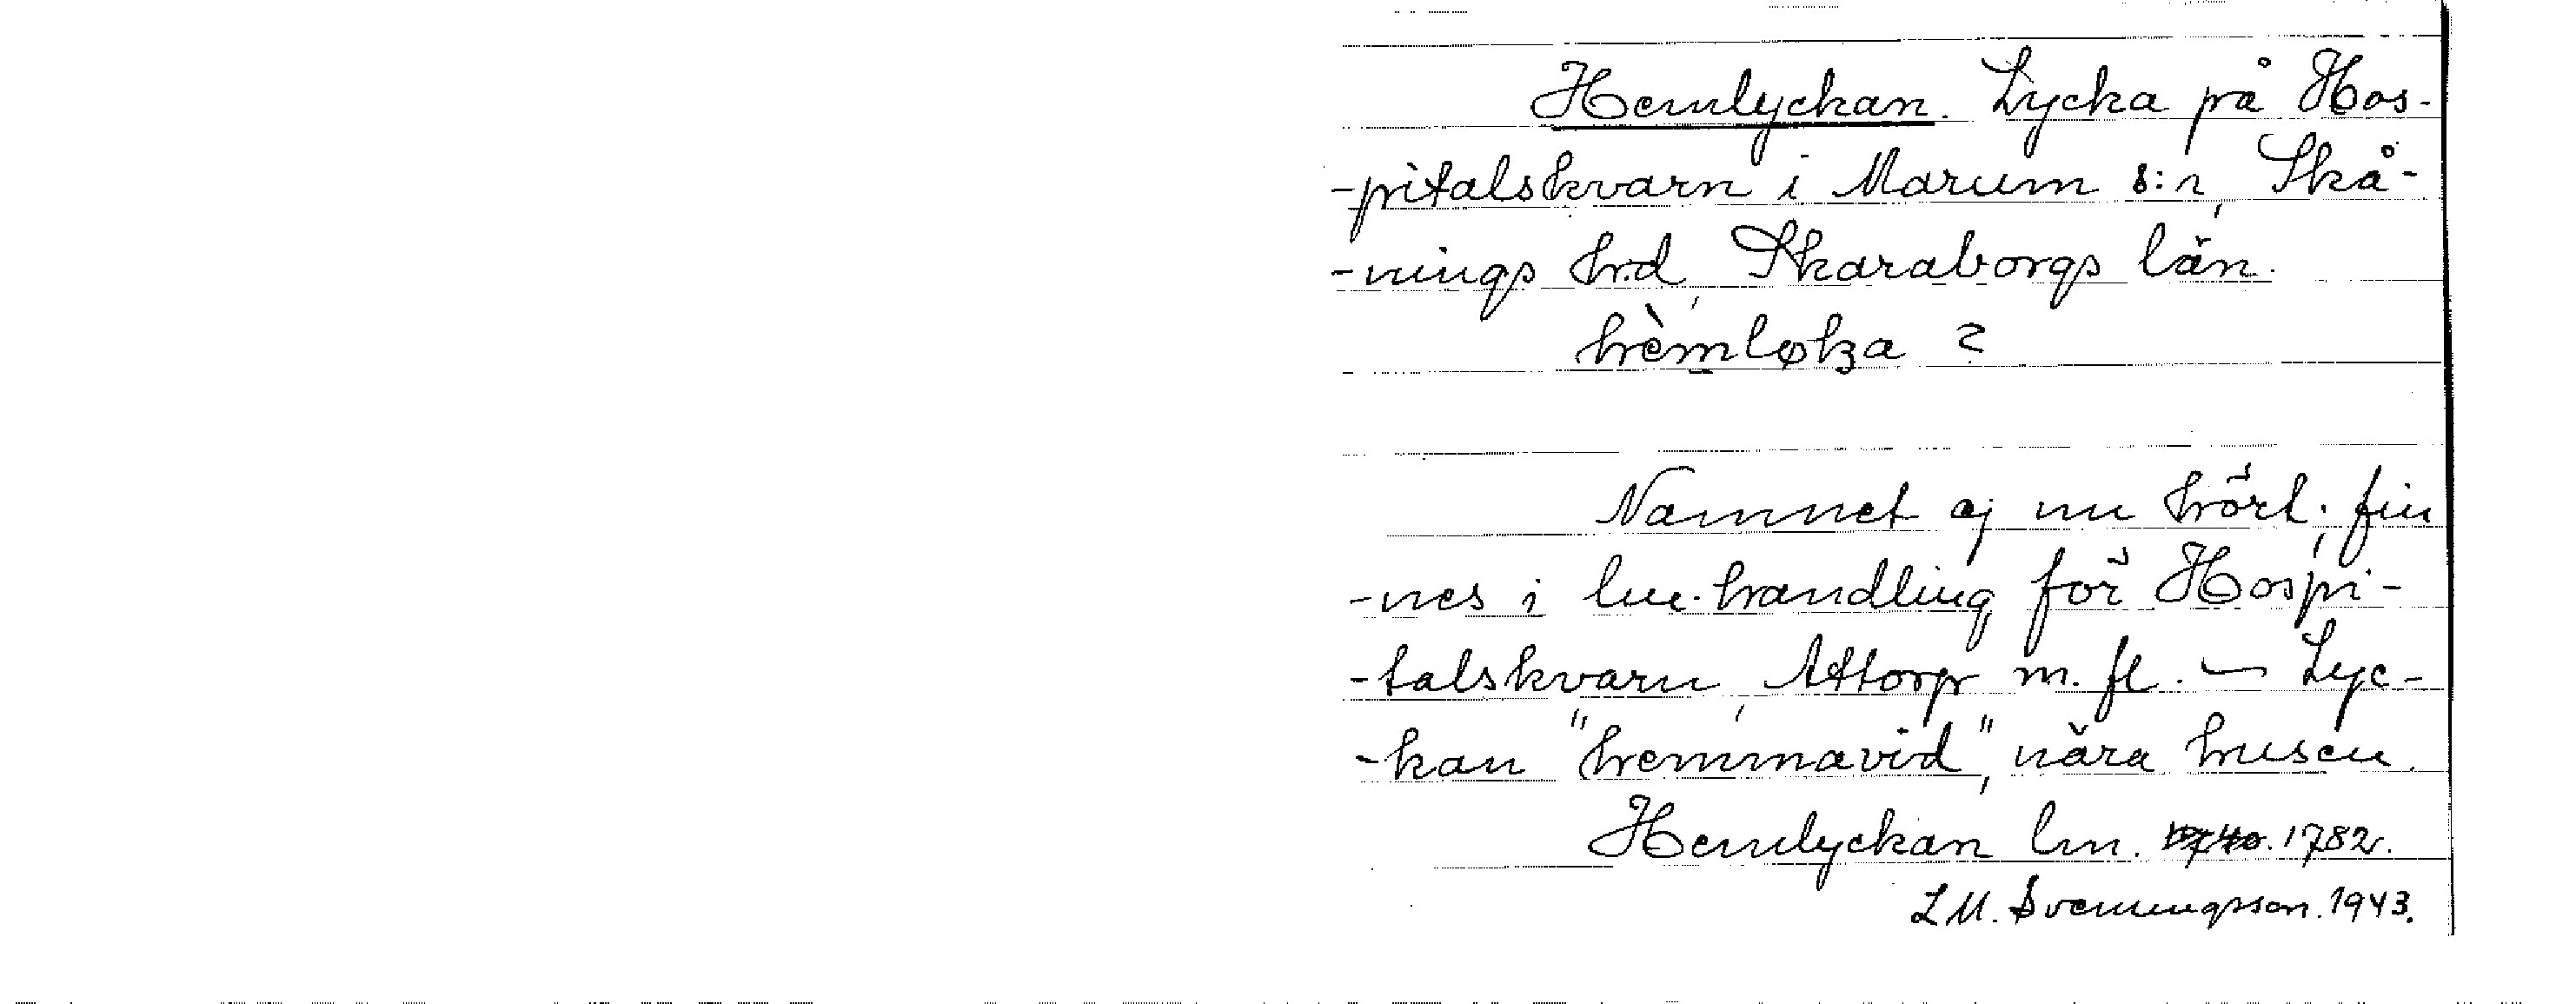 Hemlyckan. Lycka på Hos-
-pitalskvarn i Marum s:n, Skå-
-nings hrd, Skaraborgs län.
hèmløka ?
Namnet ej nu hört; fin
-nes i lm. handling för Hospi-
-talskvarn, Attorp m. fl. — Lyc-
-kan "hemmavid", nära husen.
Hemlyckan lm. 1782.
L M. Svenningsson. 1943.